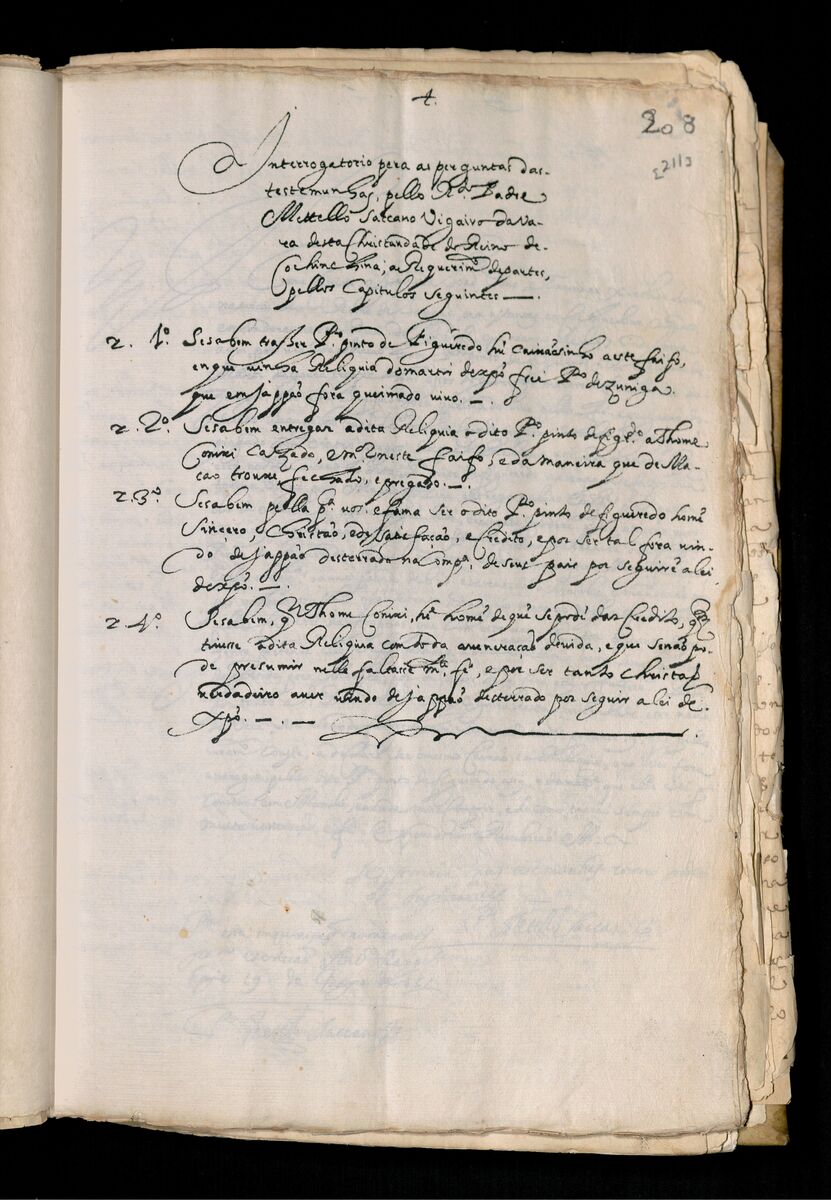 4.
208
Interrogatorio pera as perguntas das
testemunhas, pello R.do Padre
Mettello Saccano Vigairo da va-
ra desta Christandade do Reino de
Cochinchina; a Requerim.to de partes,
pellos Capitulos seguintes —.
2. 1.º Se sabem trasser P.º pinto de Figueredo hũ caixãosinho a este faifo,
em que vinha Reliquia do martir de xpõ frei P.º de Zuniga
que em Jappão fora queimado vivo. —.
2. 2.º Se sabem entregar a dita Reliquia o dito P.º pinto de fig.do a Thome
Conixi Cazado, e m.or neste faifo, e da maneira que de Ma-
cao trouxe, fechado, e pregado. —.
2. 3.º Se sabem pella p.ca vos e fama ser o dito P.º pinto de figueredo homẽ
sincero, Christão, e de satisfação, e credito, e por ser tal fora vin-
do de Jappão desterrado na Comp.a de seus pais por seguirẽ a lei
de xpõ. —.
2. 4.º Se sabem, q̃ Thome Conixi, he homẽ de quẽ se pode dar credito, q̃
tivesse a dita Reliquia com toda a veneração devida, e que se não po-
de presumir nelle faltasse m.ta fe, e por ser tanto Christão
verdadeiro aver vindo de Jappão desterrado por seguir a lei de
xpõ. —. —